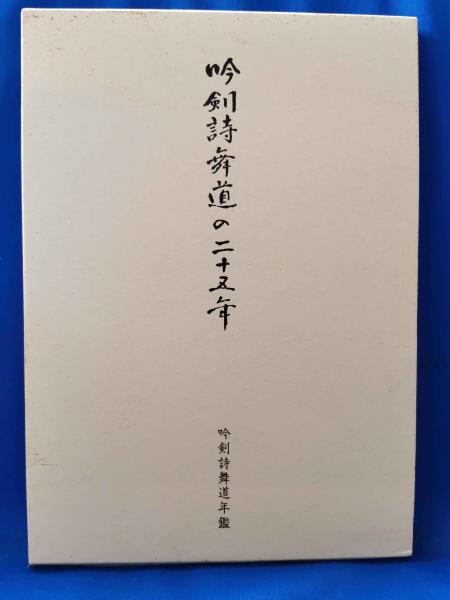 吟剣詩舞道の二十五年
吟剣詩舞道年鑑